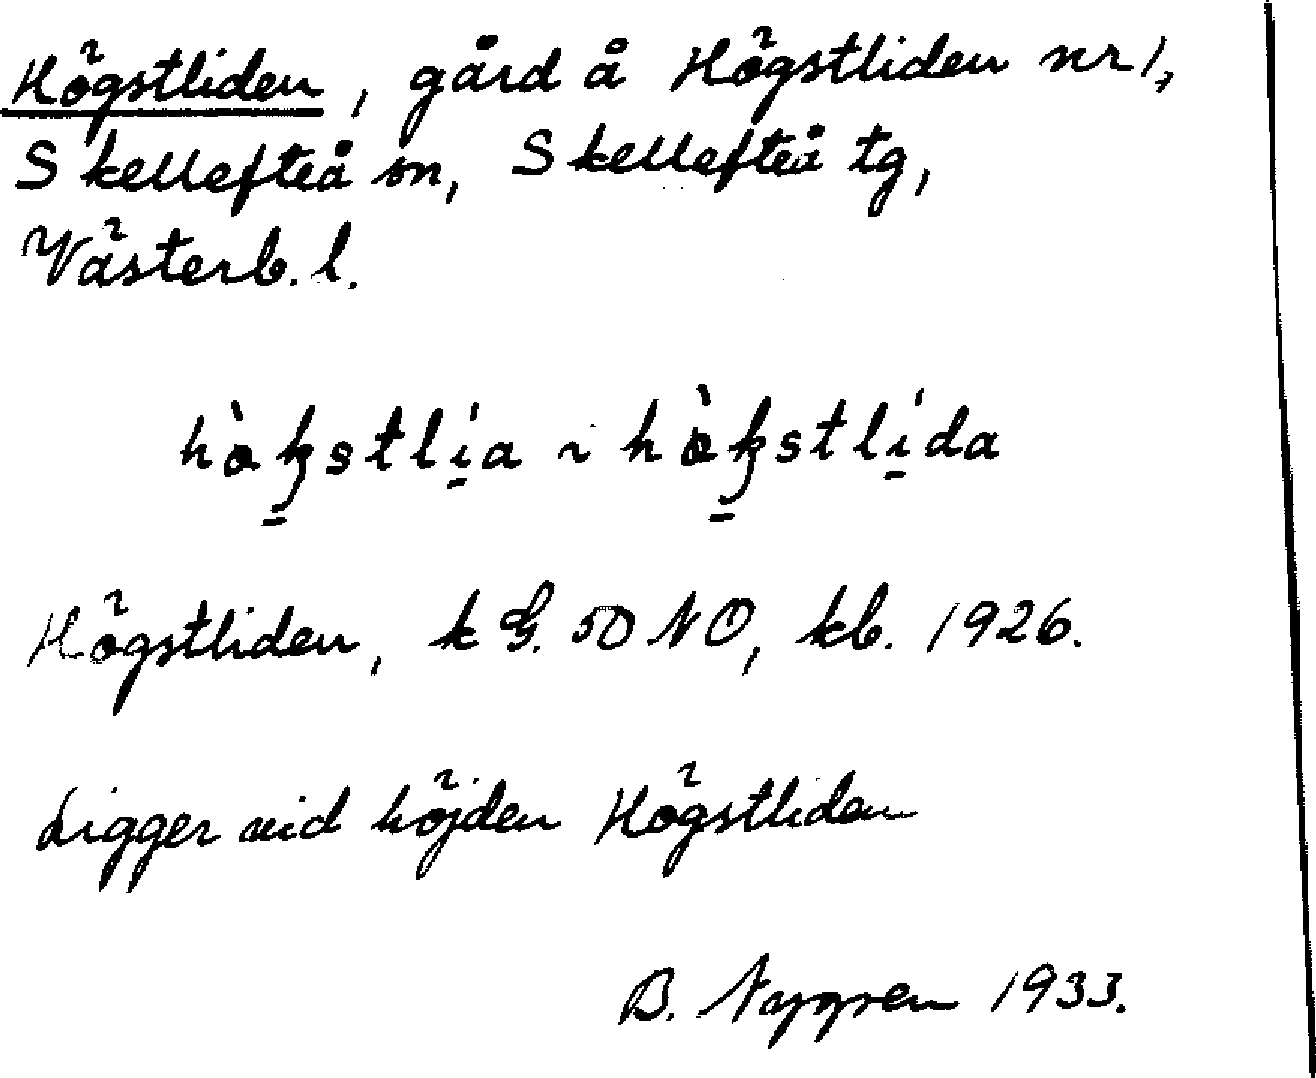 Högstliden, gård å Högstliden nr 1,
Skellefteå sn, Skellefteå tg,
Västerb. l.
Högstliden, k G. 50 NO, kb. 1926.
Ligger vid höjden Högstliden
B. Nygren 1933.